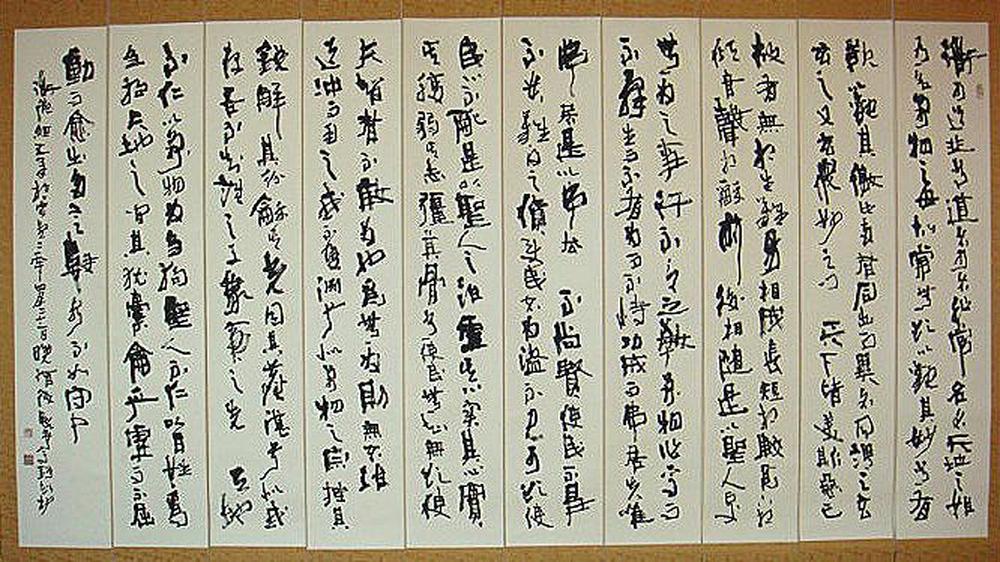 道可道非常道名可名非常名無名天地之始
有名萬物之母故常無欲以觀其妙常有
欲觀其徼此兩者同出而異名同謂之玄
玄之又玄衆妙之門 天下皆美斯惡已
故有無相生難易相成長短相較高下相
傾音聲相和前後相隨是以聖人處
無為之事行不言之教萬物作焉而
不辭生而不有為而不恃功成而弗居夫唯
弗居是以弗去 不尚賢使民不爭
不貴難得之貨使民不為盜不見可欲使
民心不亂是以聖人之治虛其心實其腹
弱其志彊其骨常使民無知無欲使
夫智者不敢為也為無為則無不治
道沖而用之或不盈淵乎似萬物之宗挫其
銳解其紛和其光同其塵湛兮似或
存吾不知誰之子象帝之先 天地
不仁以萬物為芻狗聖人不仁以百姓為
芻狗天地之間其猶橐籥乎虛而不屈
動而愈出多言數窮不如守中
道德經五章